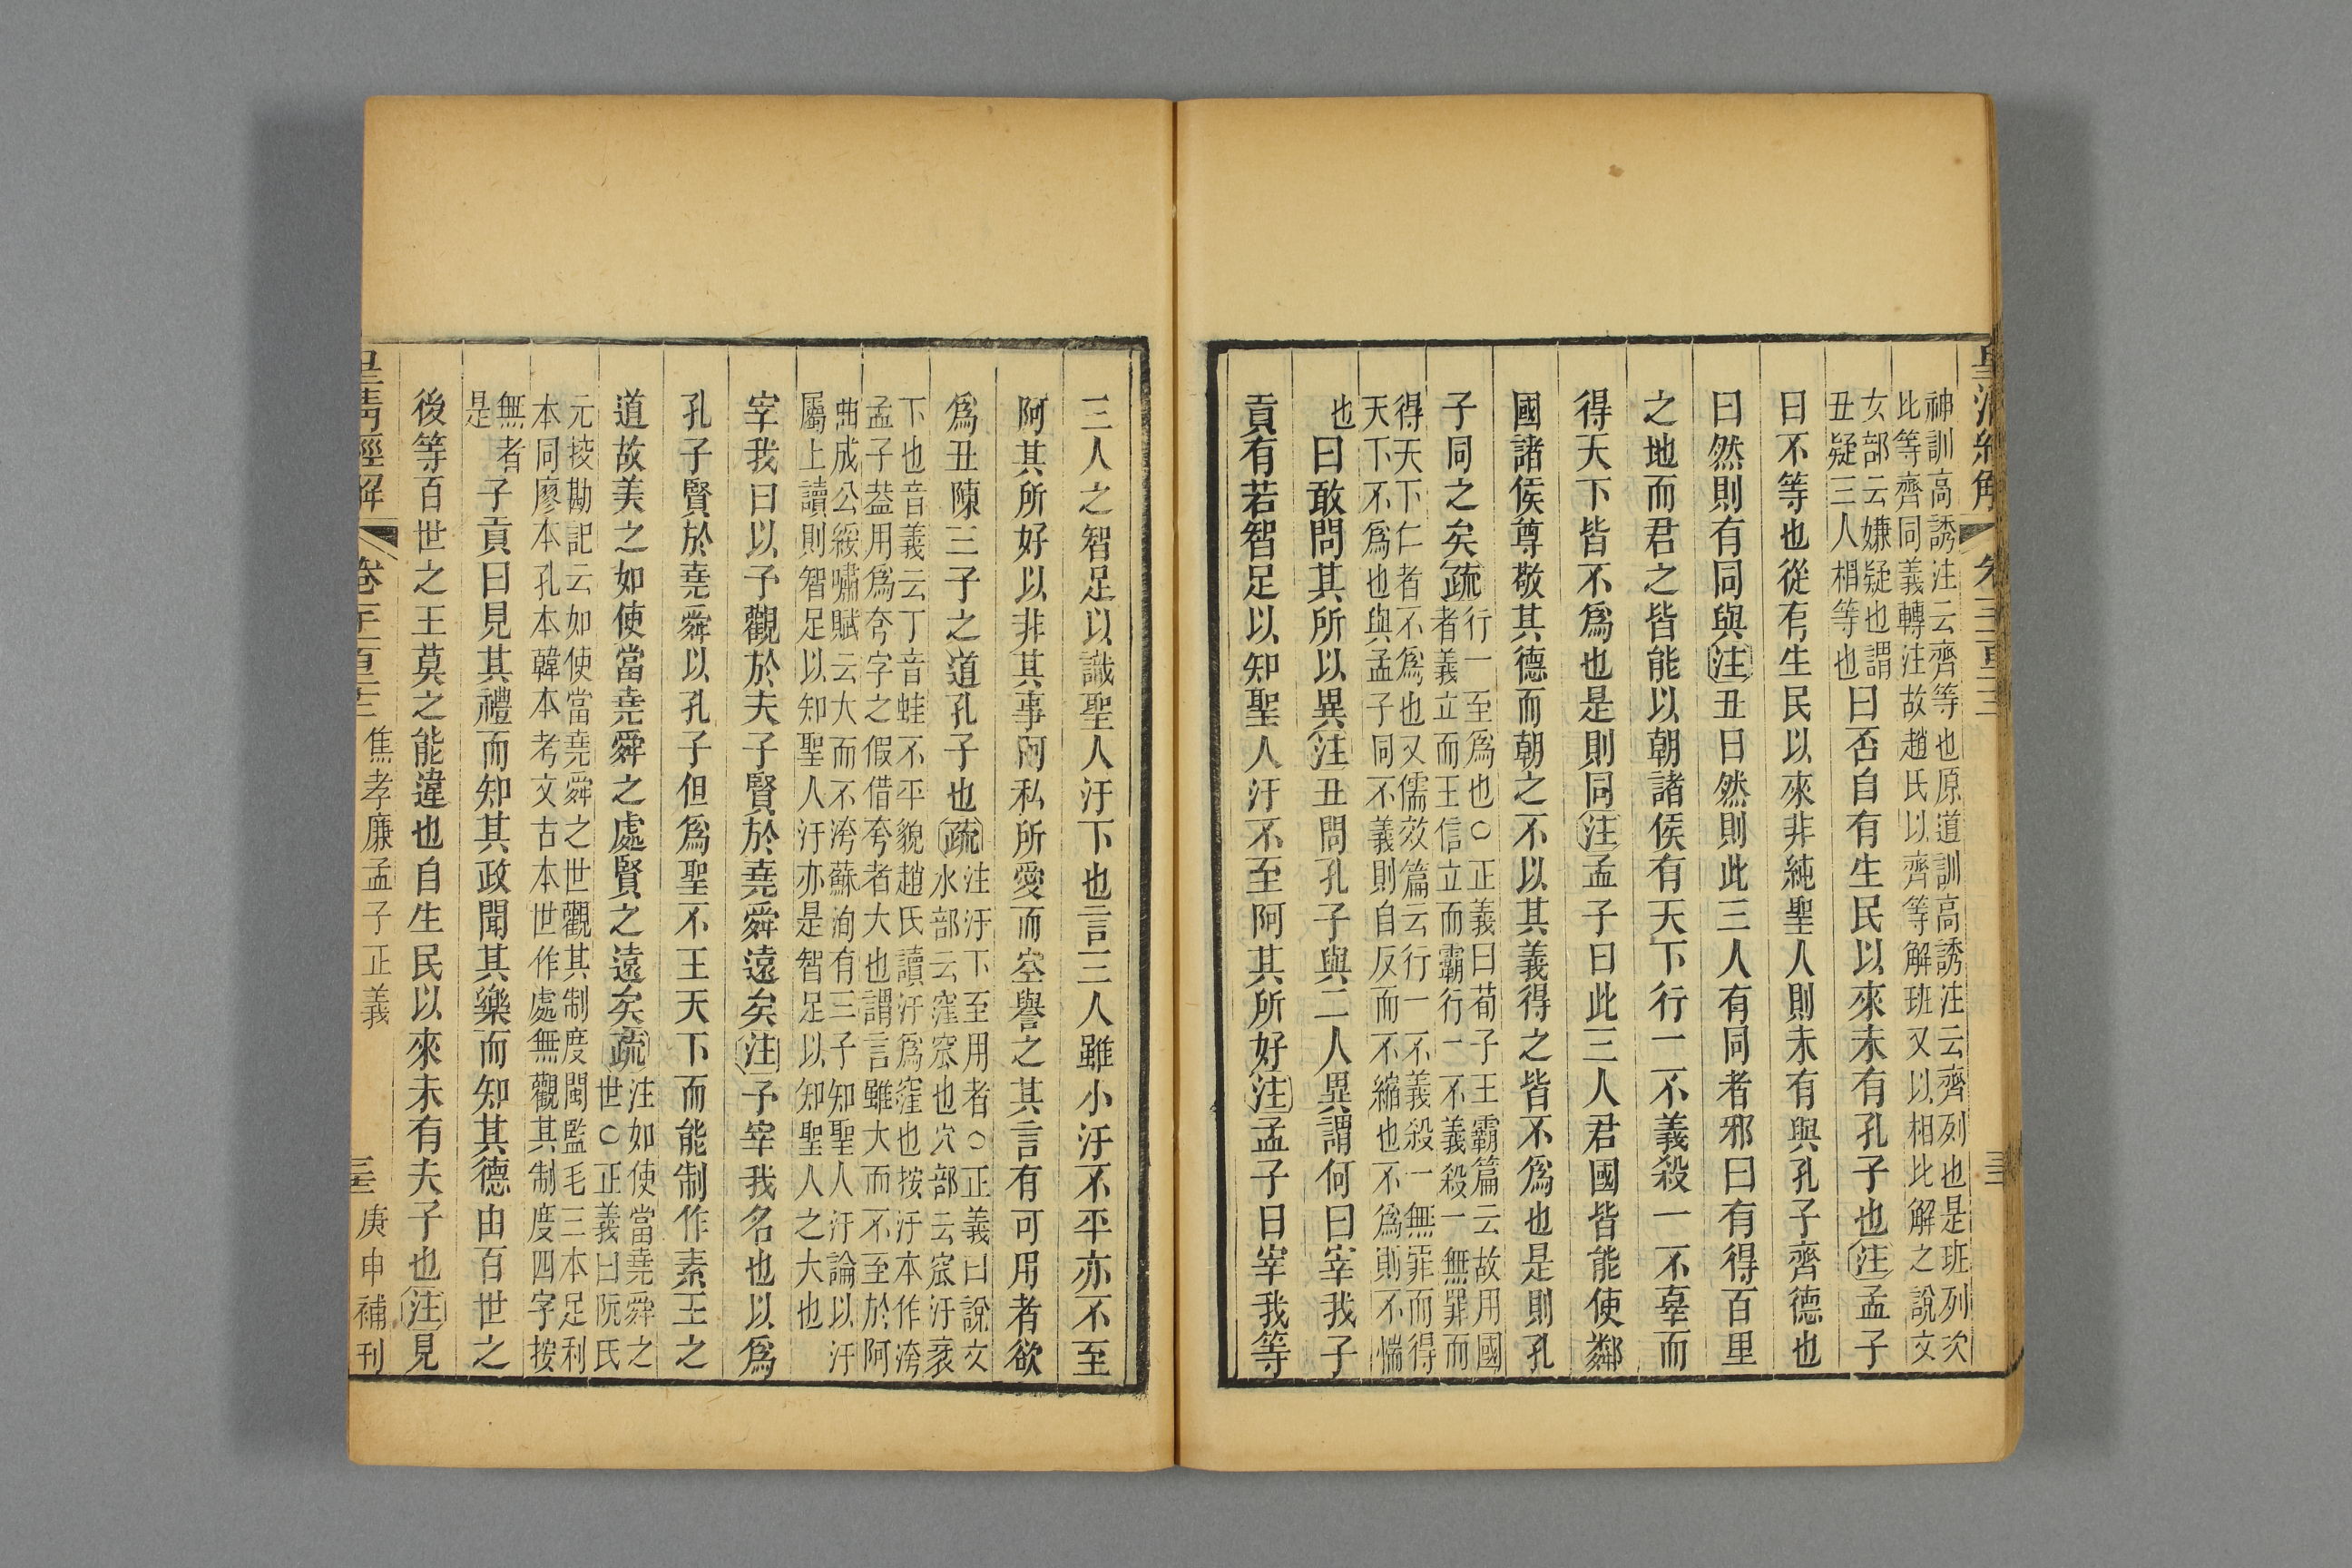 神訓高誘注云齊等也原道訓高誘注云齊列也是班列次
比等齊同義轉注故趙氏以齊等解班又以相比解之說文
女部云嫌疑也謂
丑疑三人相等也
曰否自有生民以來未有孔子也注孟子
曰不等也從有生民以來非純聖人則未有與孔子齊德也
曰然則有同與注丑曰然則此三人有同者邪曰有得百里
之地而君之皆能以朝諸侯有天下行一不義殺一不辜而
得天下皆不爲也是則同注孟子曰此三人君國皆能使鄰
國諸侯尊敬其德而朝之不以其義得之皆不爲也是則孔
子同之矣疏
行一至爲也○正義曰荀子王霸篇云故用國
者義立而王信立而霸行一不義殺一無罪而
得天下仁者不爲也又儒效篇云行一不義殺一無罪而得
天下不爲也與孟子同不義則自反而不縮也不爲則不惴
也曰敢問其所以異注丑問孔子與二人異謂何曰宰我子
貢有若智足以知聖人汙不至阿其所好注孟子曰宰我等
三人之智足以識聖人汙下也言三人雖小汙不平亦不至
阿其所好以非其事阿私所愛而空譽之其言有可用者欲
爲丑陳三子之道孔子也疏
注汙下至用者○正義曰說文
水部云窪窊也穴部云窊汙衺
下也音義云丁音蛙不平貌趙氏讀汙爲窪也按汙本作洿
孟子葢用爲夸字之假借夸者大也謂言雖大而不至於阿
曲成公綏嘯賦云大而不洿蘇洵有三子知聖人汙論以汙
屬上讀則智足以知聖人汙亦是智足以知聖人之大也
宰我曰以予觀於夫子賢於堯舜遠矣注予宰我名也以爲
孔子賢於堯舜以孔子但爲聖不王天下而能制作素王之
道故美之如使當堯舜之處賢之遠矣疏
注如使當堯舜之
世○正義曰阮氏
元挍勘記云如使當堯舜之世觀其制度閩監毛三本足利
本同廖本孔本韓本考文古本世作處無觀其制度四字按
無者
是
子貢曰見其禮而知其政聞其樂而知其德由百世之
後等百世之王莫之能違也自生民以來未有夫子也注見
焦孝廉孟子正義
庚申補刊